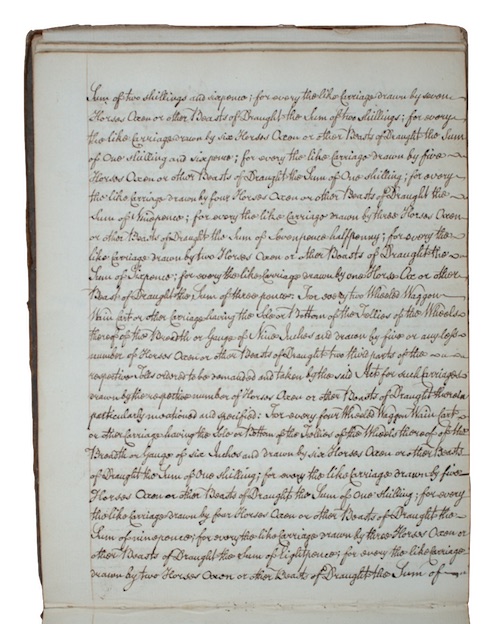 Sum of two shillings and sixpence; for every the like Carriage drawn by seven
Horses Oxen or other Beasts of Draught the Sum of two shillings; for every
the like Carriage drawn by six Horses Oxen or other Beasts of Draught the Sum
of One shilling and sixpence; for every the like Carriage drawn by five
Horses Oxen or other Beasts of Draught the Sum of One shilling; for every
the like Carriage drawn by four Horses Oxen or other Beasts of Draught the
Sum of Ninepence; for every the like Carriage drawn by three Horses Oxen
or other Beasts of Draught the Sum of Sevenpence halfpenny; for every the
like Carriage drawn by two Horses Oxen or other Beasts of Draught the
Sum of Sixpence; for every the like Carriage drawn by one Horse Ox or other
Beast of Draught the Sum of three pence: For every two Wheeled Waggon
Wain Cart or other Carriage having the Sole or Bottom of the Fellies of the Wheels
thereof of the Breadth or Gauge of Nine Inches and drawn by five or any less
number of Horses Oxen or other Beasts of Draught two third parts of the
respective Tolls ordered to be demanded and taken by the said Act for such Carriages
drawn by the respective number of Horses Oxen or other Beasts of Draught therein
particularly mentioned and specified: For every four Wheeled Waggon Wain Cart
or other Carriage having the Sole or Bottom of the Fellies of the Wheels thereof of the
Breadth or Gauge of six Inches and drawn by six Horses Oxen or other Beasts
of Draught the Sum of One shilling; for every the like Carriage drawn by five
Horses Oxen or other Beasts of Draught the Sum of One shilling; for every
the like Carriage drawn by four Horses Oxen or other Beasts of Draught the
Sum of ninepence; for every the like Carriage drawn by three Horses Oxen or
other Beasts of Draught the Sum of Eightpence; for every the like Carriage
drawn by two Horses Oxen or other Beasts of Draught the Sum of